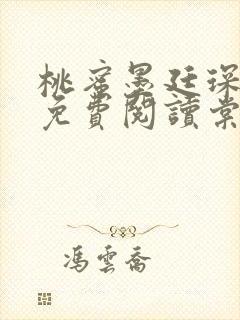 桃蜜墨廷琛
免費閱讀棠
馮雲喬